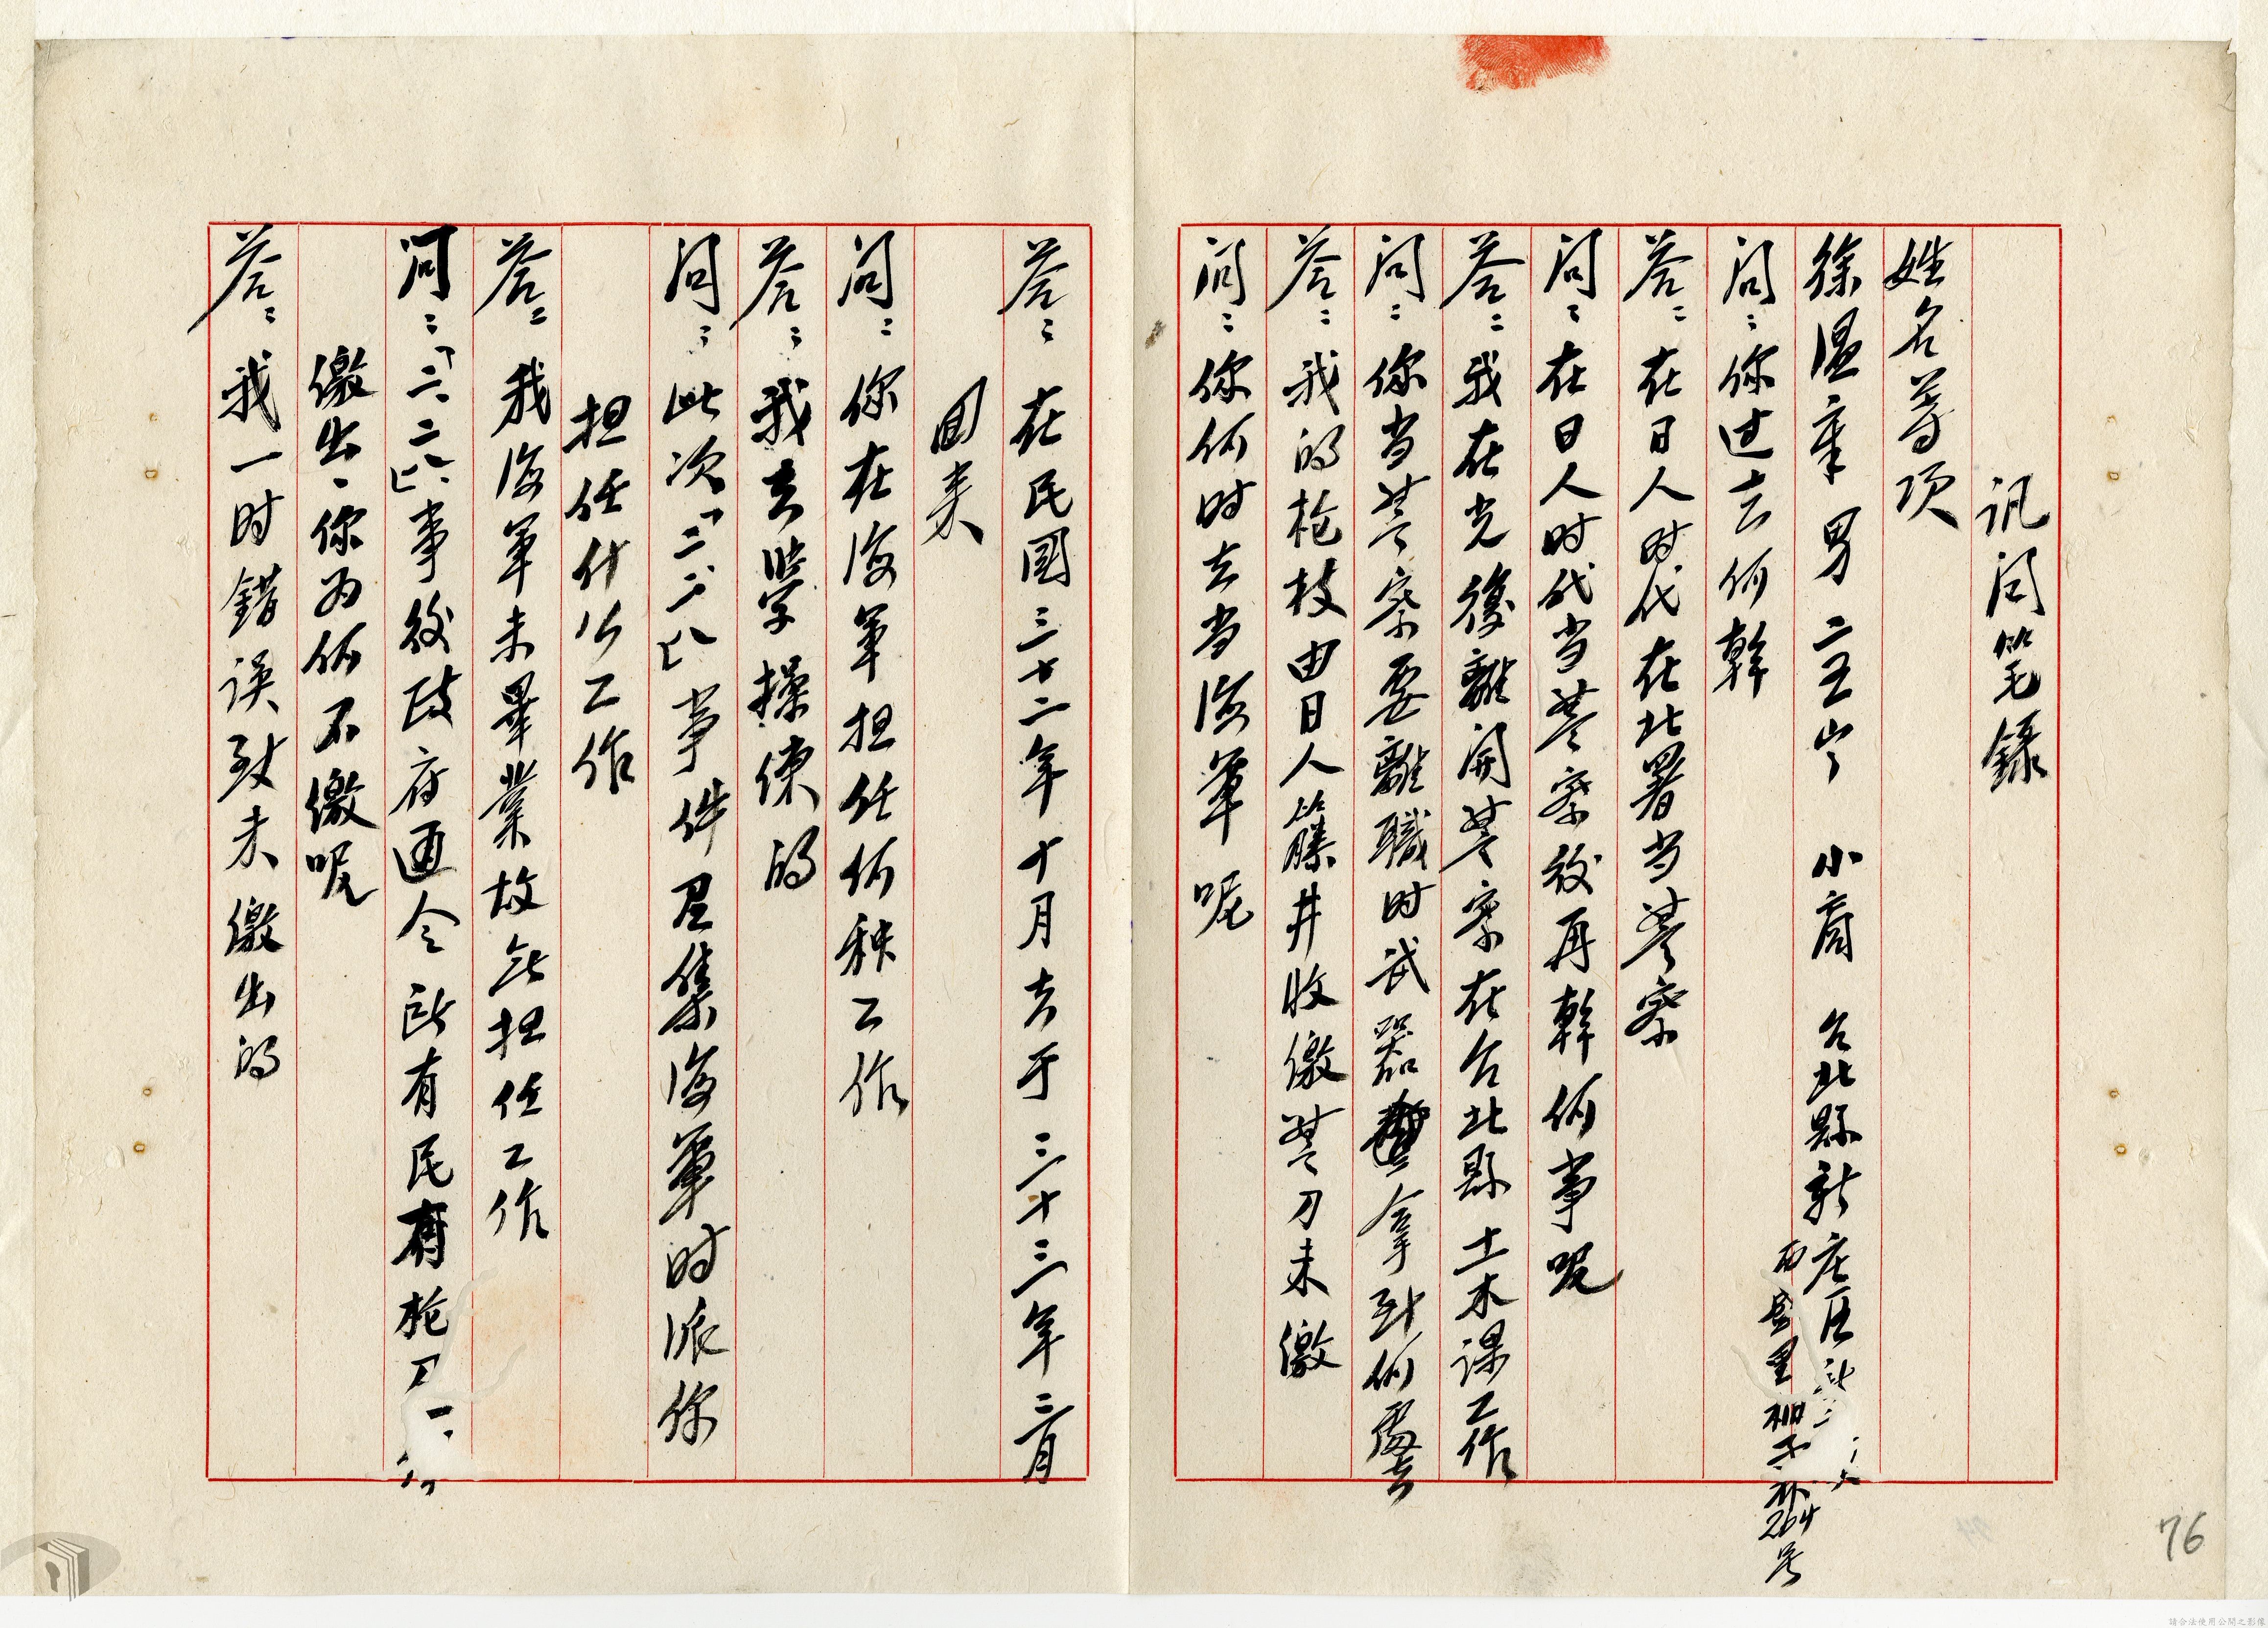 訊问笔録
姓名等项
徐温章 男 二五岁 小商 台北縣新庄区
西盛里柳子林264号
问:你过去何幹
答:在日人时代在北署当警察
问:在日人时代当警察後再幹何事呢
答:我在光復離開警察在台北縣土木课工作
问:你当警察要離職时武器拿到何處去
答:我的枪枝由日人籐井收缴警刀未缴
问:你何时去当海軍呢
答:在民國三十二年十月去于三十三年三月
回来
问:你在海軍担任何种工作
答:我去学操练的
问:此次「二二八」事件召集海軍时派你
担任什么工作
答:我海軍未畢業故無担任工作
问:「二二八」事後政府通令所有民有枪刀一
缴出、你为何不缴呢
答:我一时錯误致未缴出的
76
請合法使用公開之影像